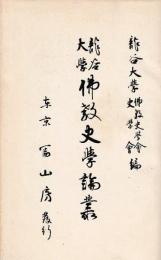 龍谷大學 佛教史學會 史學會 編
龍谷大學 佛教史學論叢
東京 冨山房 發行